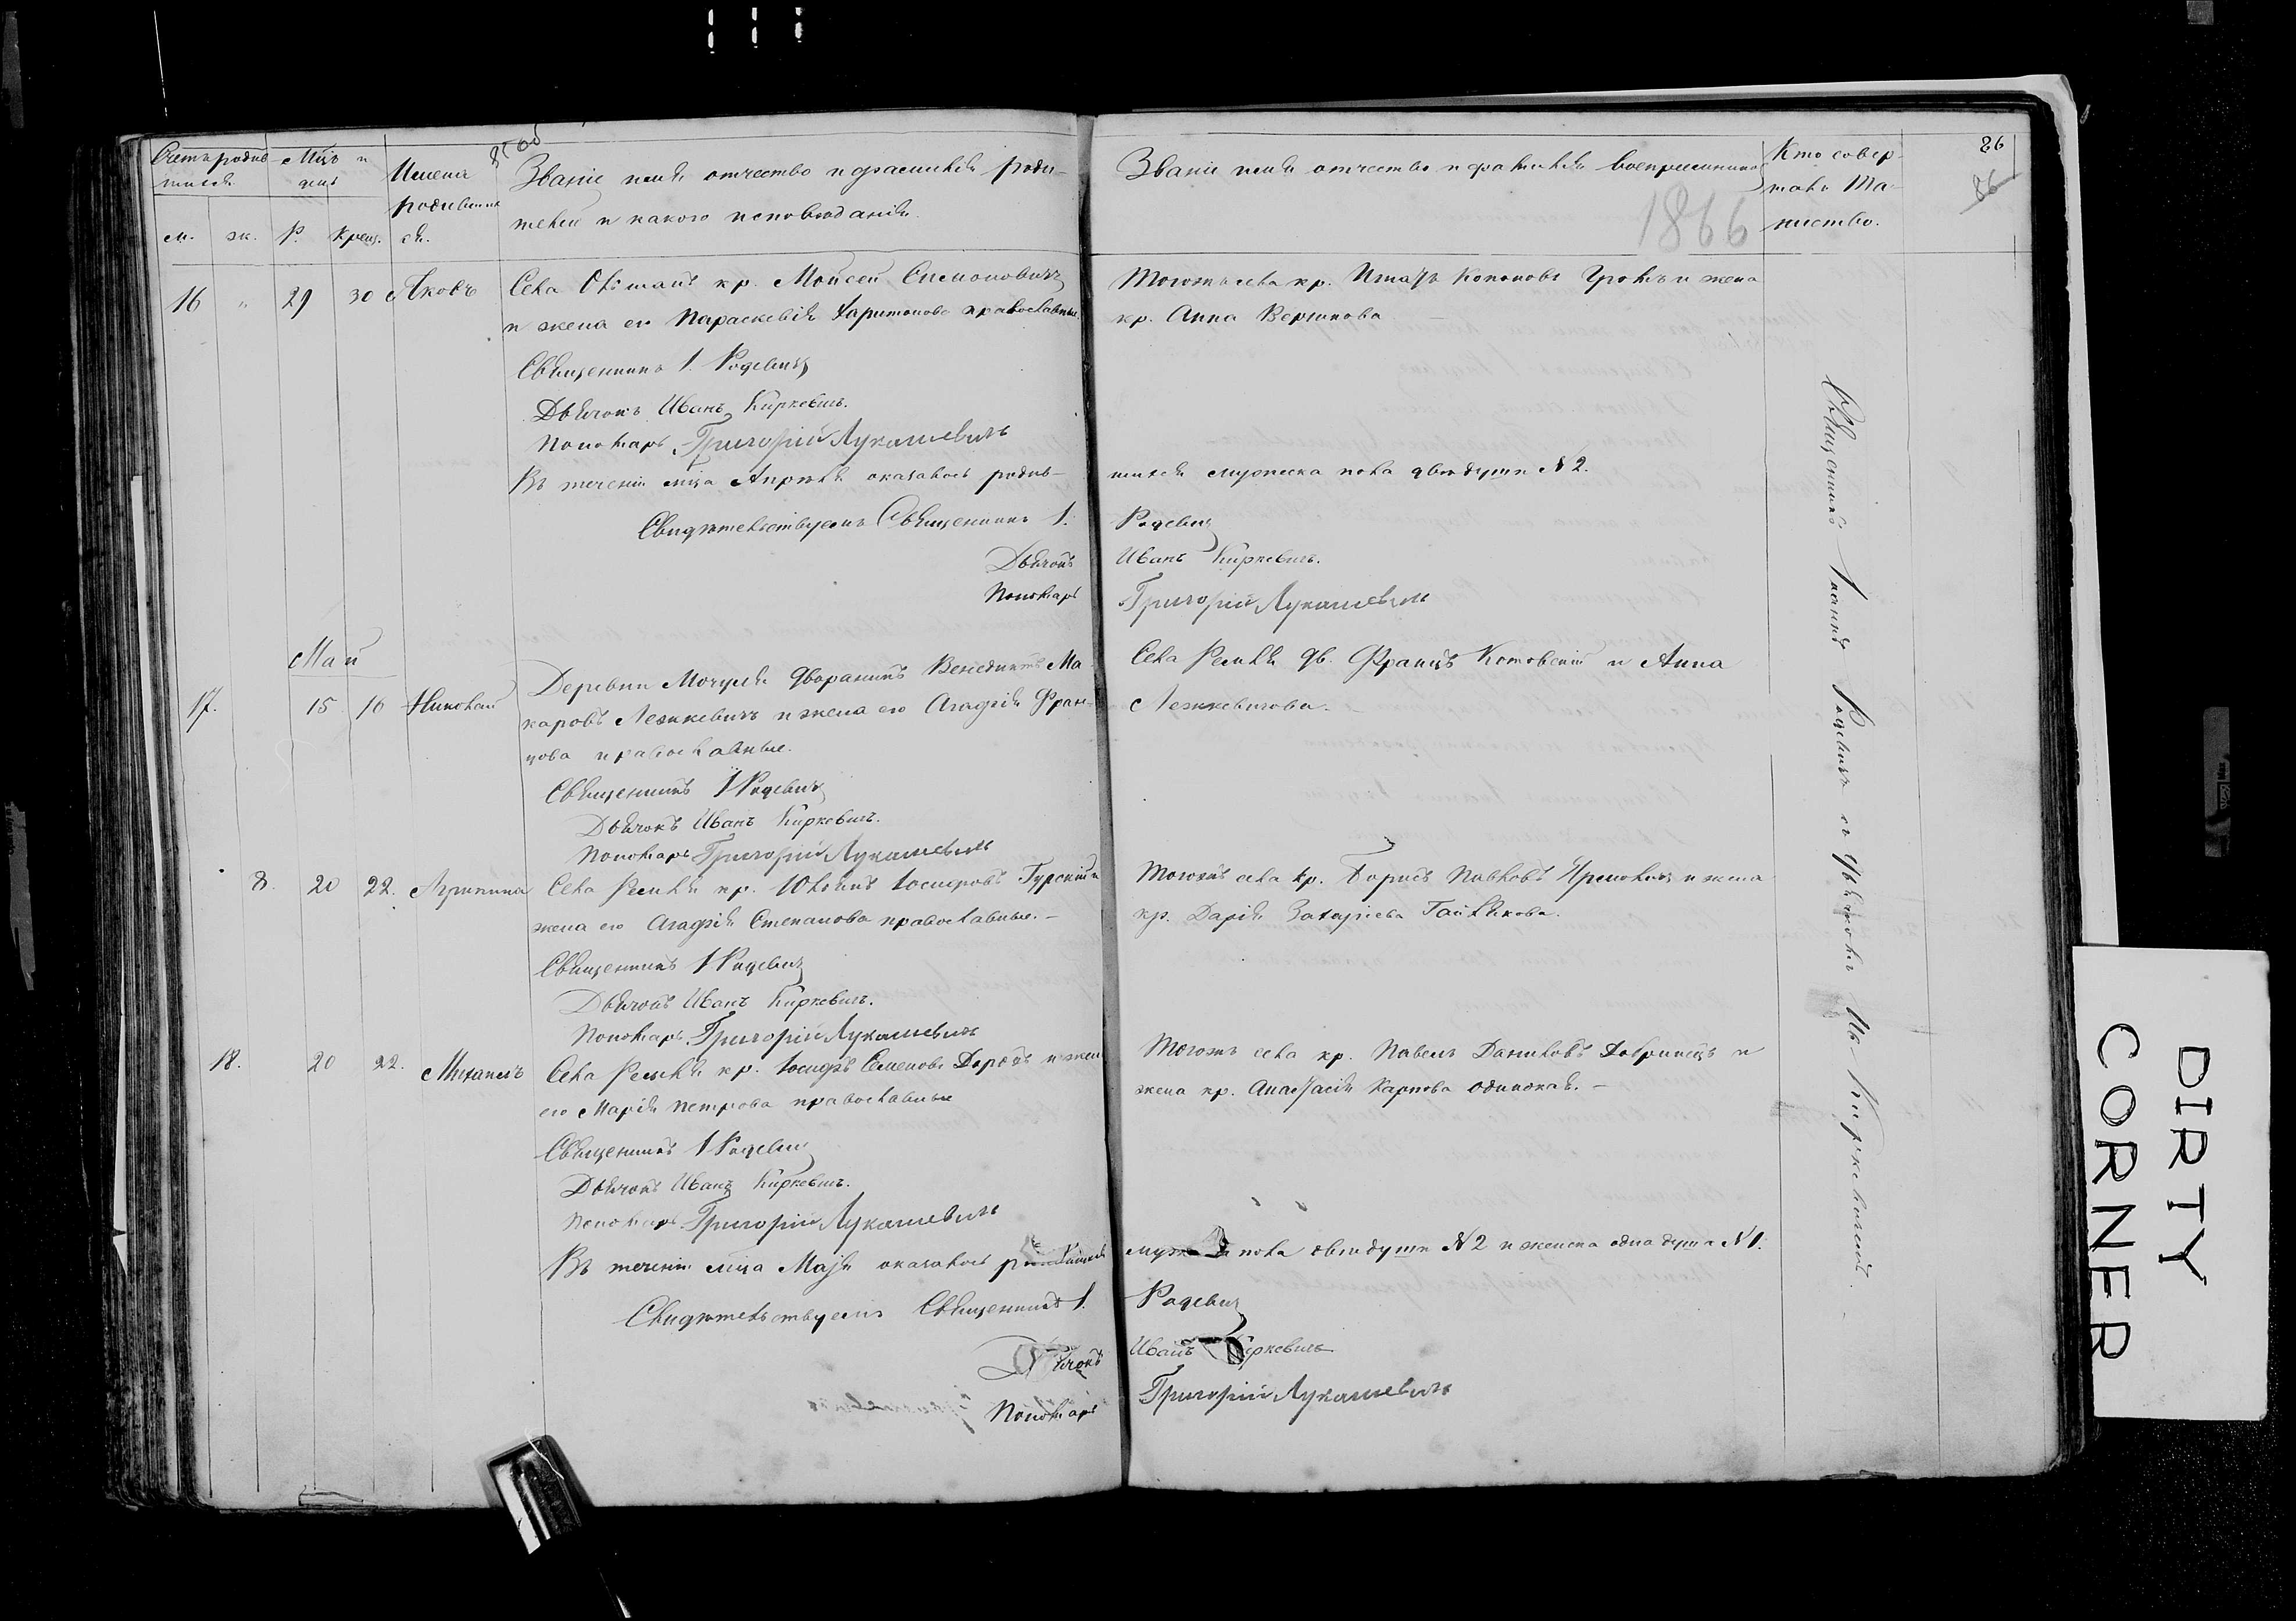 86
86
1866
Счетъ родив-
шихся
м. ж.
Мцъ и
день
Р. Крещ.
Имена
родивших
ся.
Званіе имя отчество и фамилія роди-
телей и какого исповѣданія.
Званіе имя отчество и фамилія воспріемниковъ
Кто совер-
шалъ Та-
инство.
16 " 29 30 Яковъ
Села кр. Моисей Симоновичъ
и жена его Параскевія Харитонова православные.
Тогожъ села кр. Игнатъ Кононовъ и жена
кр. Анна
Священникъ І. Радевичъ
Дьячокъ Иванъ Киркевичъ.
Пономарь Григорій Лукашевичъ
Въ теченіи мца Апрѣля оказалось родив-
шихся мужеска пола двѣ души № 2.
Свидѣтельствуемъ Священникъ І. Радевичъ
Дьячокъ Иванъ Киркевичъ.
Пономарь Григорій Лукашевичъ
Май
17. 15 16 Николай
Деревни Мочуля дворянинъ Венедиктъ Ма-
каровъ Лешкевичъ и жена его Агафія Фран-
цова православные.
Села Ремля дв. Францъ Котовскій и Анна
Лешкевичова.
Священникъ І Радевичъ
Дьячокъ Иванъ Киркевичъ.
Пономарь Григорій Лукашевичъ
8. 20 22. Агрипина
Села Ремля кр. Юліанъ Іосифовъ Гурскій и
жена его Агафія Степанова православные. –
Тогожъ села кр. Борисъ Павловъ и жена
кр. Дарія Захаріева
Священникъ І Радевичъ
Дьячокъ Иванъ Киркевичъ.
Пономарь Григорій Лукашевичъ
18. 20 22. Михаилъ
Села Ремля кр. Іосифъ Семеновъ и жена
его Марія Петрова православные
Тогожъ села кр. Павелъ Даниловъ и
жена кр. Анастасія Карпова –
Священникъ І Радевичъ
Дьячокъ Иванъ Киркевичъ.
Пономарь Григорій Лукашевичъ
Въ теченіи мца Маія оказалось
пола двѣ души № 2 и женска одна душа № 1.
Свидѣтельствуемъ Священникъ І. Радевичъ
Дьячокъ Иванъ Киркевичъ
Пономарь Григорій Лукашевичъ
Священникъ Іоаннъ Радевичъ съ дьячкомъ Ив. Киркевичемъ.
DIRTY
CORNER